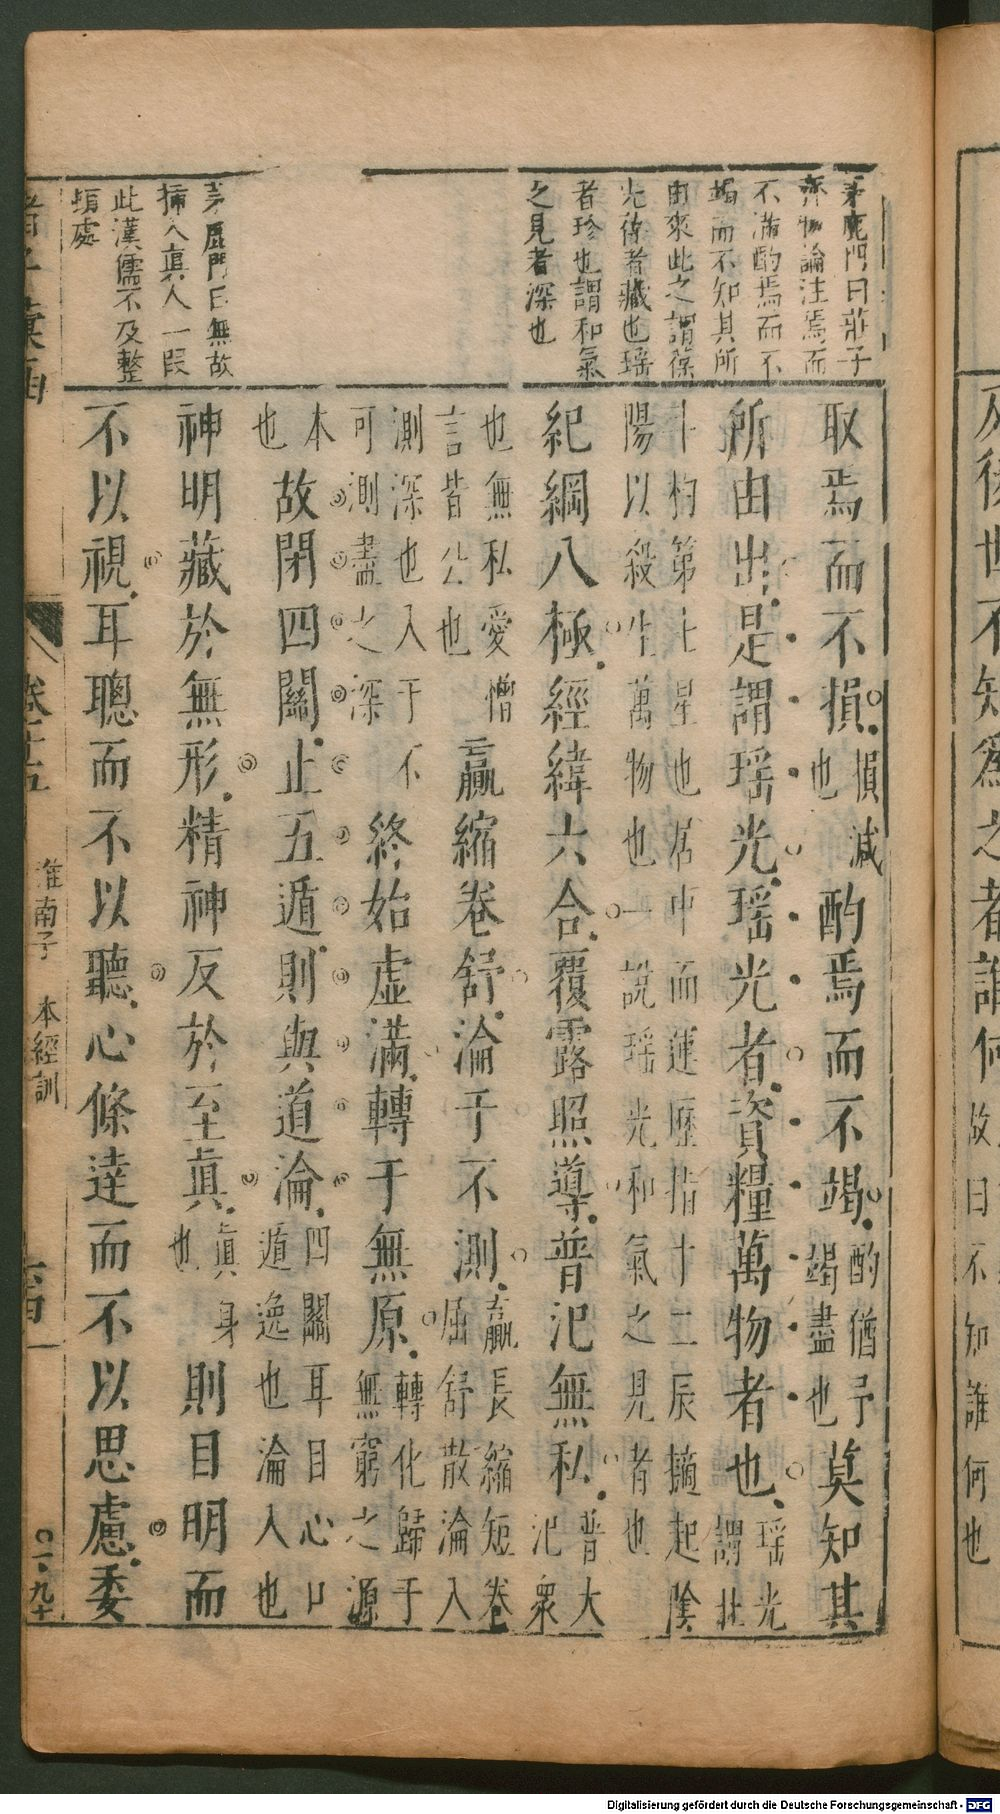 茅鹿門曰莊子
齊物論注焉而
不滿酌焉而不
竭而不知其所
由來此之謂葆
光葆者藏也瑶
者珍也謂和氣
之見者深也
茅鹿門曰無故
插入真人一段
此漢儒不及整
頓處
取焉而不損損減也酌焉而不竭酌猶予竭盡也莫知其
所由出是謂瑶光瑶光者資糧萬物者也瑶光謂北
斗杓第七星也居中而運歷指十二辰擿起陰
陽以殺生萬物也一說瑶光和氣之見者也
紀綱八極經緯六合覆露照導普氾無私普大氾衆
也無私愛憎言皆公也贏縮卷舒淪于不測贏長縮短卷屈舒散淪入
測深也入于不可測盡之深終始虚滿轉于無原轉化歸于無窮之源
本也故閉四關止五遁則與道淪四關耳目心口遁逸也淪入也
神明藏於無形精神反於至眞眞身也則目明而
不以視耳聰而不以聽心條達而不以思慮委
諸子彙函
卷十五
淮南子 本經訓
〇一·九十
從後世不知爲之者誰何故曰不知誰何也
Digitalisierung gefördert durch die Deutsche Forschungsgemeinschaft - DFG